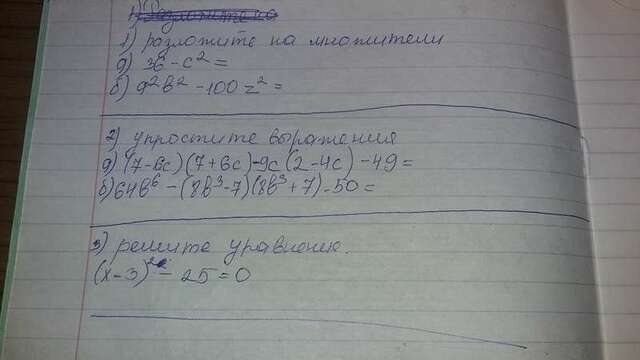 1) разложите на множители
а) 36 - c² =
б) a²b² - 100z² =
2) упростите выражения
а) (7-6c)(7+6c)-9c(2-4c)-49=
б) 64b⁶ - (8b³-7)(8b³+7)-50=
3) решите уравнение.
(x-3)² - 25 = 0